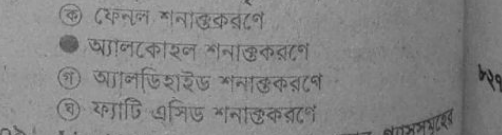 ক ফেনল শনাক্তকরণে
অ্যালকোহল শনাক্তকরণে
গ অ্যালডিহাইড শনাক্তকরণে
ঘ ফ্যাটি এসিড শনাক্তকরণে